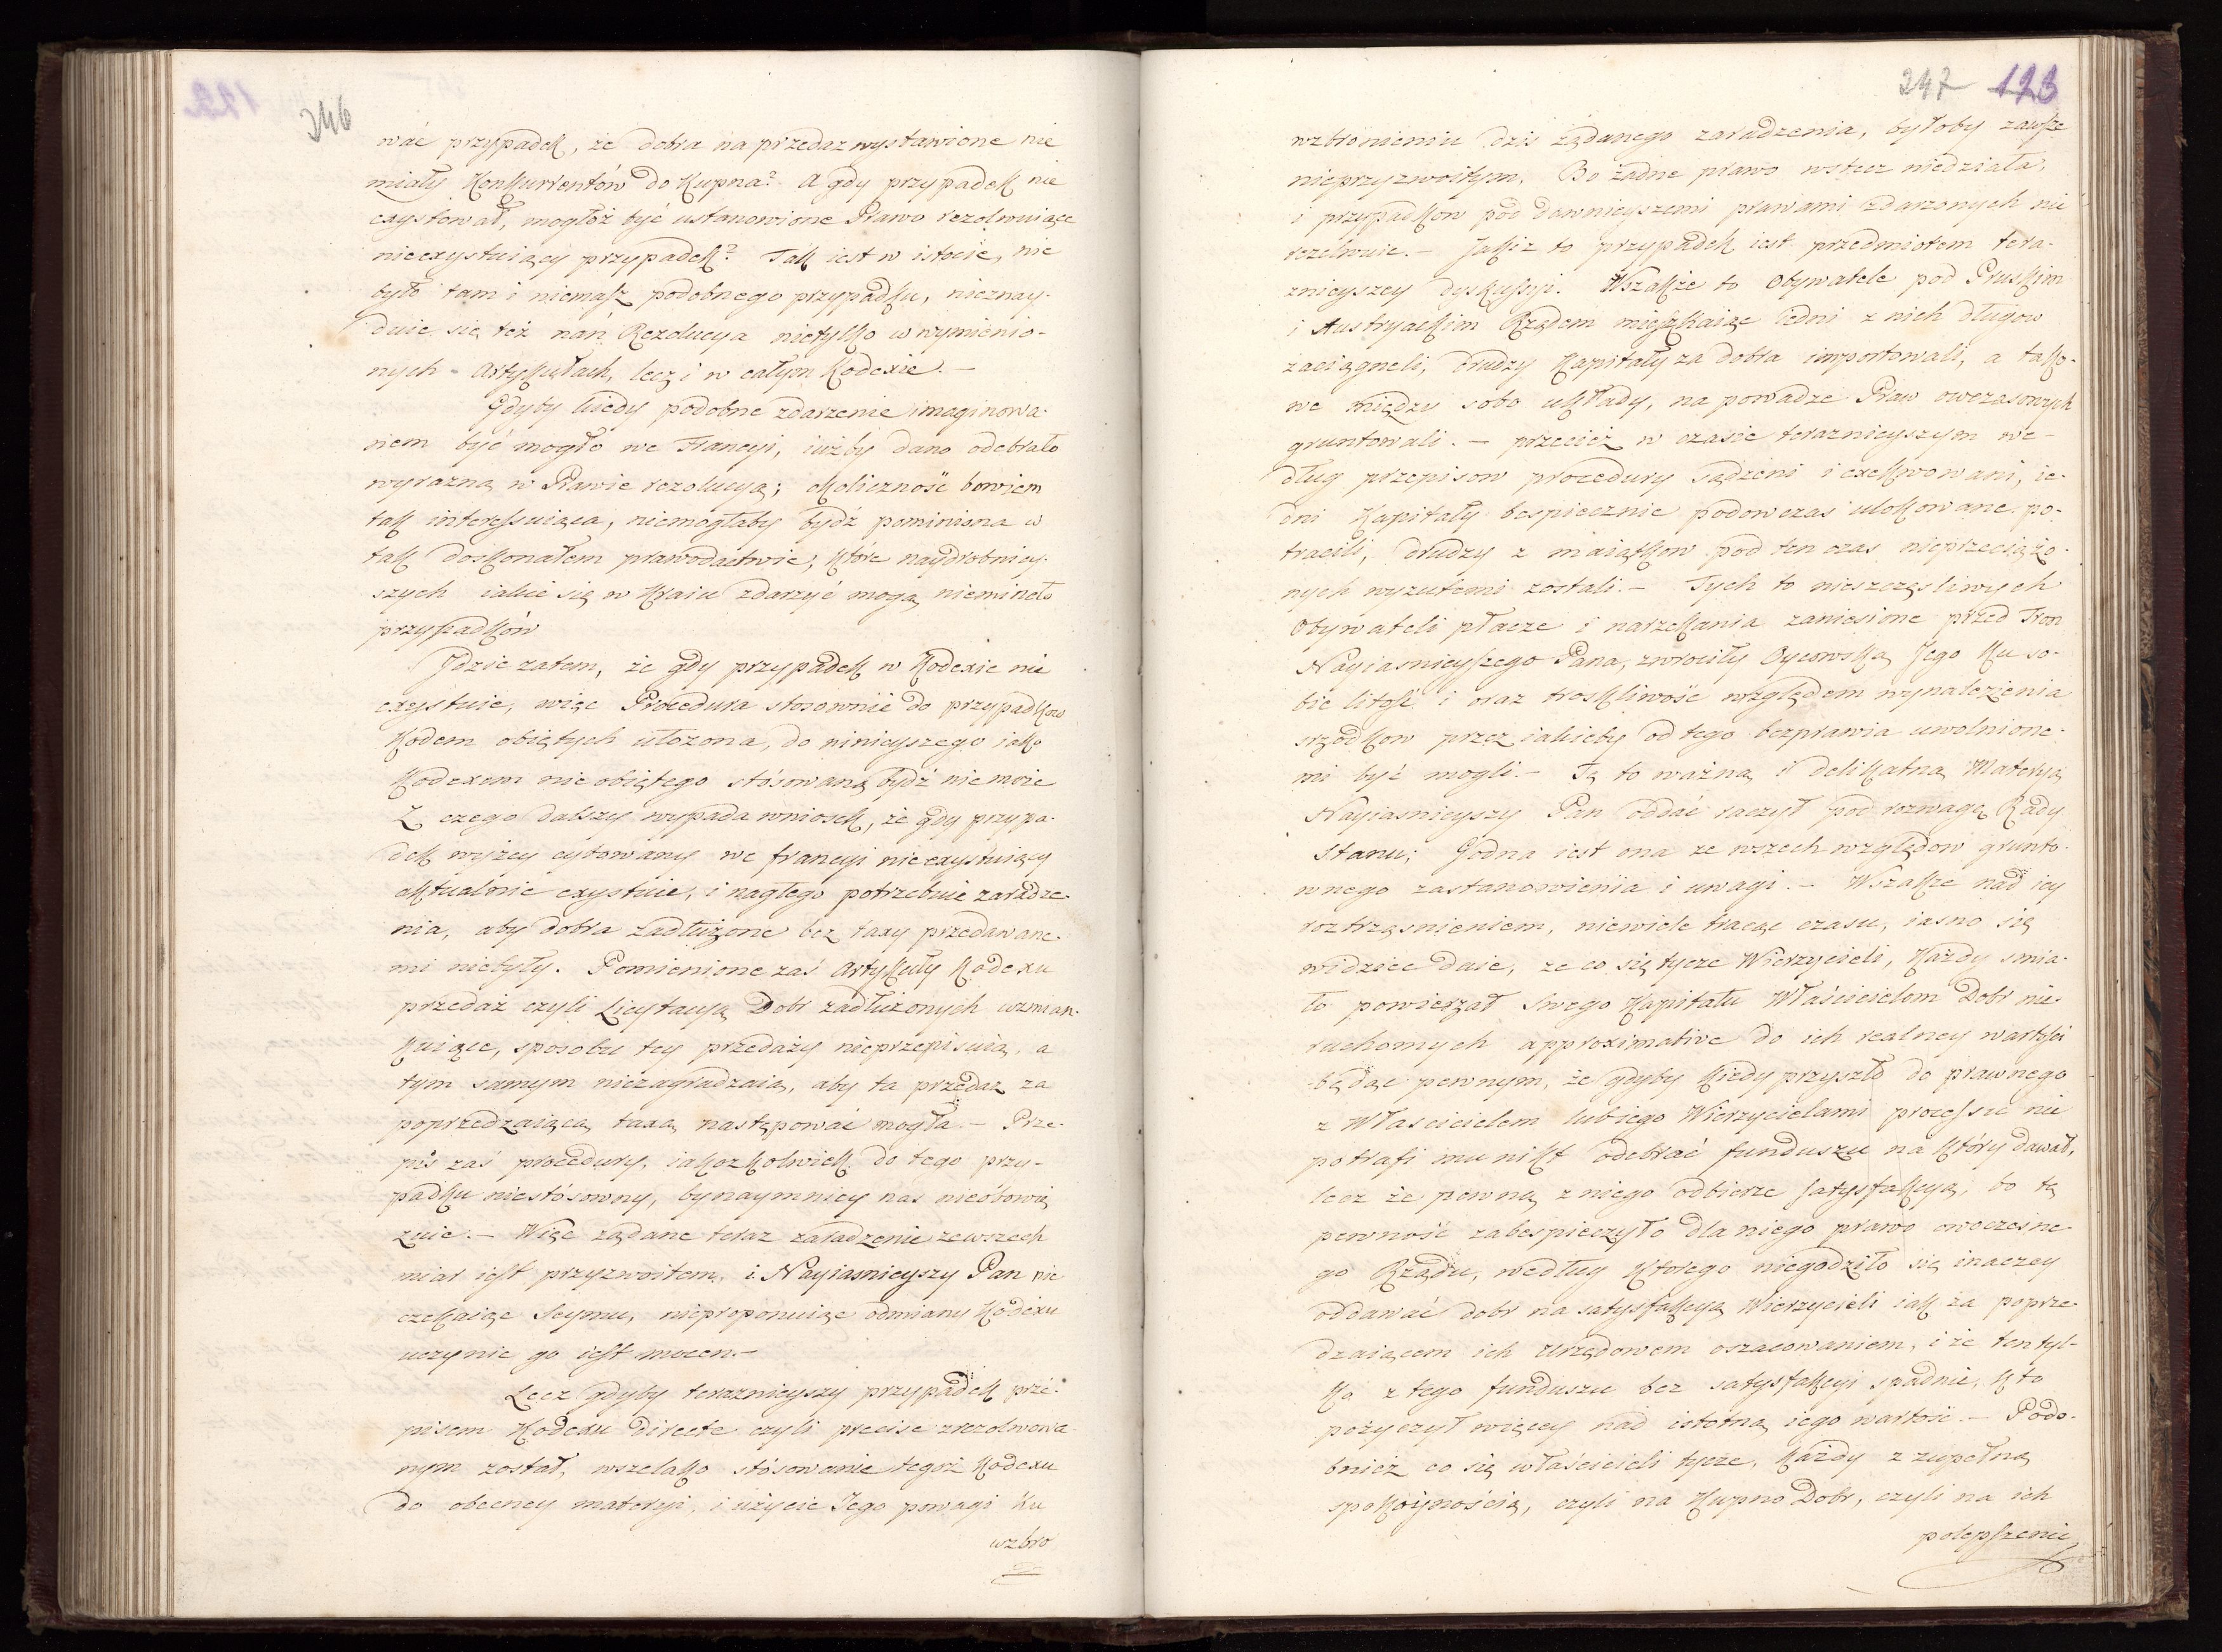 346
wać przypadek, że dobra na przedaz wystawione nie
miały Konkurrentów do Kupna? A gdy przypadek nie
exystował, mogłóż być ustanowione Prawo rezolwuiące
nieexystuiący przypadek? Tak iest w istocie, nie
było tam i niemasz podobnego przypadku, nieznay-
duie się też nań Rezolucya nietylko w wymienio-
nych Artykułach, lecz i w całym Kodexie. —
Gdyby kiedy podobne zdarzenie imaginowa-
nem być mogło we Francyi, iużby dano odebrało
wyrazną w Prawie rezolucyą; okoliczność bowiem
tak interessuiąca, niemogłaby bydź pominiona w
tak doskonałem prawodactwie, które naydrobniey-
szych iakie się w Kraiu zdarzyć mogą nieminęło
przypadków
Idzie zatem, że gdy przypadek w Kodexie nie
exystuie, więc Procedura stosownie do przypadkow
Kodem obiętych ułozona, do ninieyszego iako
Kodexem nie obiętego stósowaną bydź nie może
Z czego dalszy wypada wniosek, że gdy przypa-
dek wyżey cytowany we francyi nieexystuiący
aktualnie exystuie, i nagłego potrzebuie zaradze-
nia, aby dobra zadłużone bez taxy przedawane-
mi niebyły. Pomienione zaś Artykuły Kodexu
przedaż czyli Licytacyą Dobr zadłużonych wzmian-
kuiące, sposobu tey przedaży nieprzepisuią, a
tym samym niezagradzaią, aby ta przedaz za
poprzedzaiącą taxą następować mogła. — Prze-
pis zaś procedury, iakożkolwiek do tego przy-
padku niestósowny, bynaymniey nas nieobowią
zuie. — Więc żądane teraz zaradzenie zewszech
miar iest przyzwoitem, i Nayiasnieyszy Pan nie
czekaiąc Seymu, nieproponuiąc odmiany Kodexu
uczynic go iest mocen. —
Lecz gdyby terazniejszy przypadek prze-
pisem Kodexu directe czyli precise zrezolwowa
nym został, wszelako stósowanie tegoż Kodexu
do obecney materyi, i użycie Jego powagi ku
wzbro
247 123
wzbronieniu dzis żądanego zaradzenia, byłoby zawsze
nieprzyzwoitym. Bo żadne prawo wstecz niedziała,
i przypadkow pod dawnieyszemi prawami zdarzonych nie
rezolwuie. — Jakiz to przypadek iest przedmiotem tera-
znieyszey dyskussyi. Wszakże to Obywatele pod Pruskim
i Austryackim Rządem mieszkaiąc iedni z nich długow
zaciągneli, drudzy Kapitały za dobra importowali, a tako-
we między sobo układy, na powadze Praw owczasowych
gruntowali. — przecież w czasie teraznieyszym we-
dług przepisow procedury sądzeni i exekwowani, ie-
dni Kapitały bespiecznie podowczas ulokowane po-
tracili, drudzy z maiątkow pod ten czas nieprzeciążo-
nych wyzutemi zostali. — Tych to nieszczęsliwych
Obywateli płacze i narzekania zaniesione przed Tron
Nayiasnieyszego Pana, zwrociły Oycowską Jego ku so-
bie litość i oraz troskliwość względem wynalezienia
srzodkow przez iakieby od tego bezprawia uwolnione-
mi być mogli. — Tę to ważną i delikatną Materyą
Nayiasnieyszy Pan oddać raczył pod rozwagę Rady
Stanu; Godna iest ona ze wszech względow grunto-
wnego zastanowienia i uwagi. — Wszakże nad iey
roztrząsnieniem, niewiele tracąc czasu, iasno się
widziec daie, ze co się tycze Wierzycieli, Każdy smia-
ło powierzał swego Kapitału Właścicielom Dobr nie-
ruchomych approximative do ich realney wartości
będąc pewnym, że gdyby kiedy przyszło do prawnego
z Włascicielem lub iego Wierzycielami processu nie
potrafi mu nikt odebrać funduszu na który dawał,
lecz że pewną z niego odbierze satysfakcyą, bo tę
pewność zabespieczyło dla niego prawo owoczesne-
go Rządu, według ktorego niegodziło się inaczey
oddawać dobr na satysfakcyą Wierzycieli iak za poprze-
dzaiącem ich Urzędowem oszacowaniem, i że ten tyl-
ko z tego funduszu bez satysfakcyi spadnie, kto
pożyczył więcey nad istotną iego wartość. — Podo-
bnież co się właścicieli tycze, każdy z zupełną
spokoynością, czyli na Kupno Dobr, czyli na ich
polepszenie